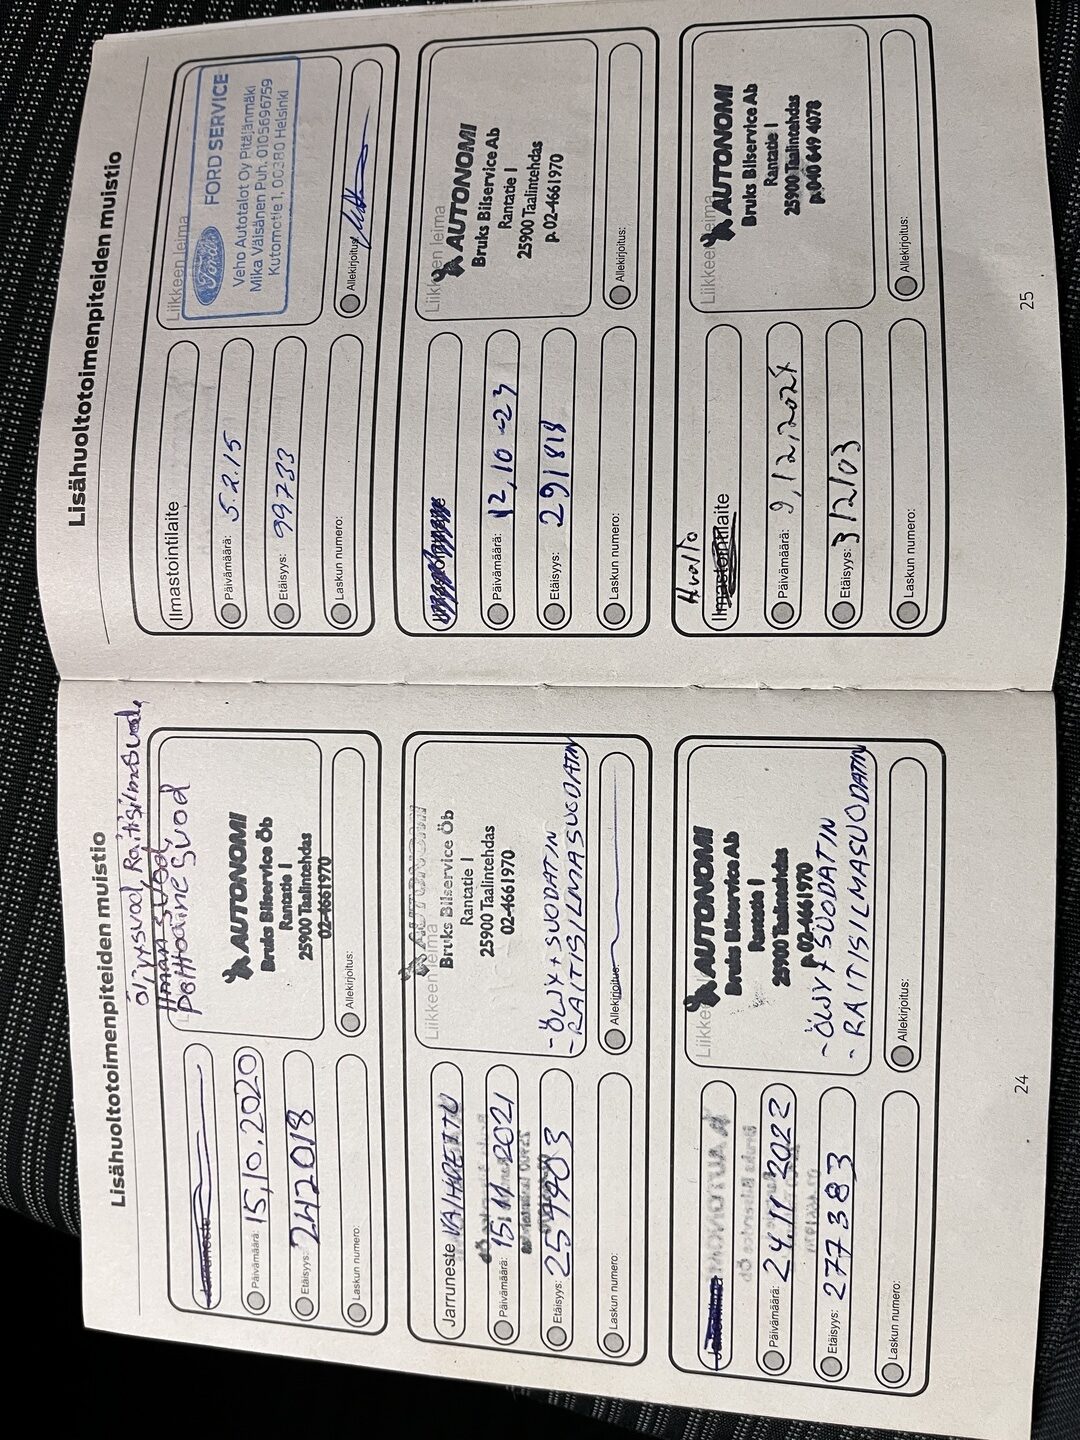 Lisähuoltotoimenpiteiden muistio
Öljysuod, Raitisilmasuod,
Ilman suod,
Polttoaine suod
Jarruneste
Päivämäärä: 15,10.2020
Etäisyys: 242018
Laskun numero:
AUTONOMI
Bruks Bilservice Öb
Rantatie 1
25900 Taalintehdas
02-4661970
Allekirjoitus:
Jarruneste VAIHDETTU
Päivämäärä: 15.11.2021
Etäisyys: 259903
Laskun numero:
Liikkeen leima
AUTONOMI
Bruks Bilservice Öb
Rantatie 1
25900 Taalintehdas
02-4661970
- ÖLJY + SUODATIN
- RAITISILMASUODATIN
Allekirjoitus:
Päivämäärä: 24.11.2022
Etäisyys: 277383
Laskun numero:
AUTONOMI
Bruks Bilservice Ab
Rantatie 1
25900 Taalintehdas
p. 02-4661970
- ÖLJY + SUODATIN
- RAITISILMASUODATIN
Allekirjoitus:
24
Lisähuoltotoimenpiteiden muistio
Ilmastointilaite
Päivämäärä: 5.2.15
Etäisyys: 99733
Laskun numero:
Liikkeen leima
Ford
FORD SERVICE
Veho Autotalot Oy Pitäjänmäki
Mika Väisänen Puh. 0105696759
Kutomotie 1, 00380 Helsinki
Allekirjoitus:
Ilmastointilaite
Päivämäärä: 12,10-23
Etäisyys: 291818
Laskun numero:
Liikkeen leima
AUTONOMI
Bruks Bilservice Ab
Rantatie 1
25900 Taalintehdas
p. 02-4661970
Allekirjoitus:
Huolto
Ilmastointilaite
Päivämäärä: 9,12,2024
Etäisyys: 312103
Laskun numero:
Liikkeen leima
AUTONOMI
Bruks Bilservice Ab
Rantatie 1
25900 Taalintehdas
p. 040 649 4078
Allekirjoitus:
25